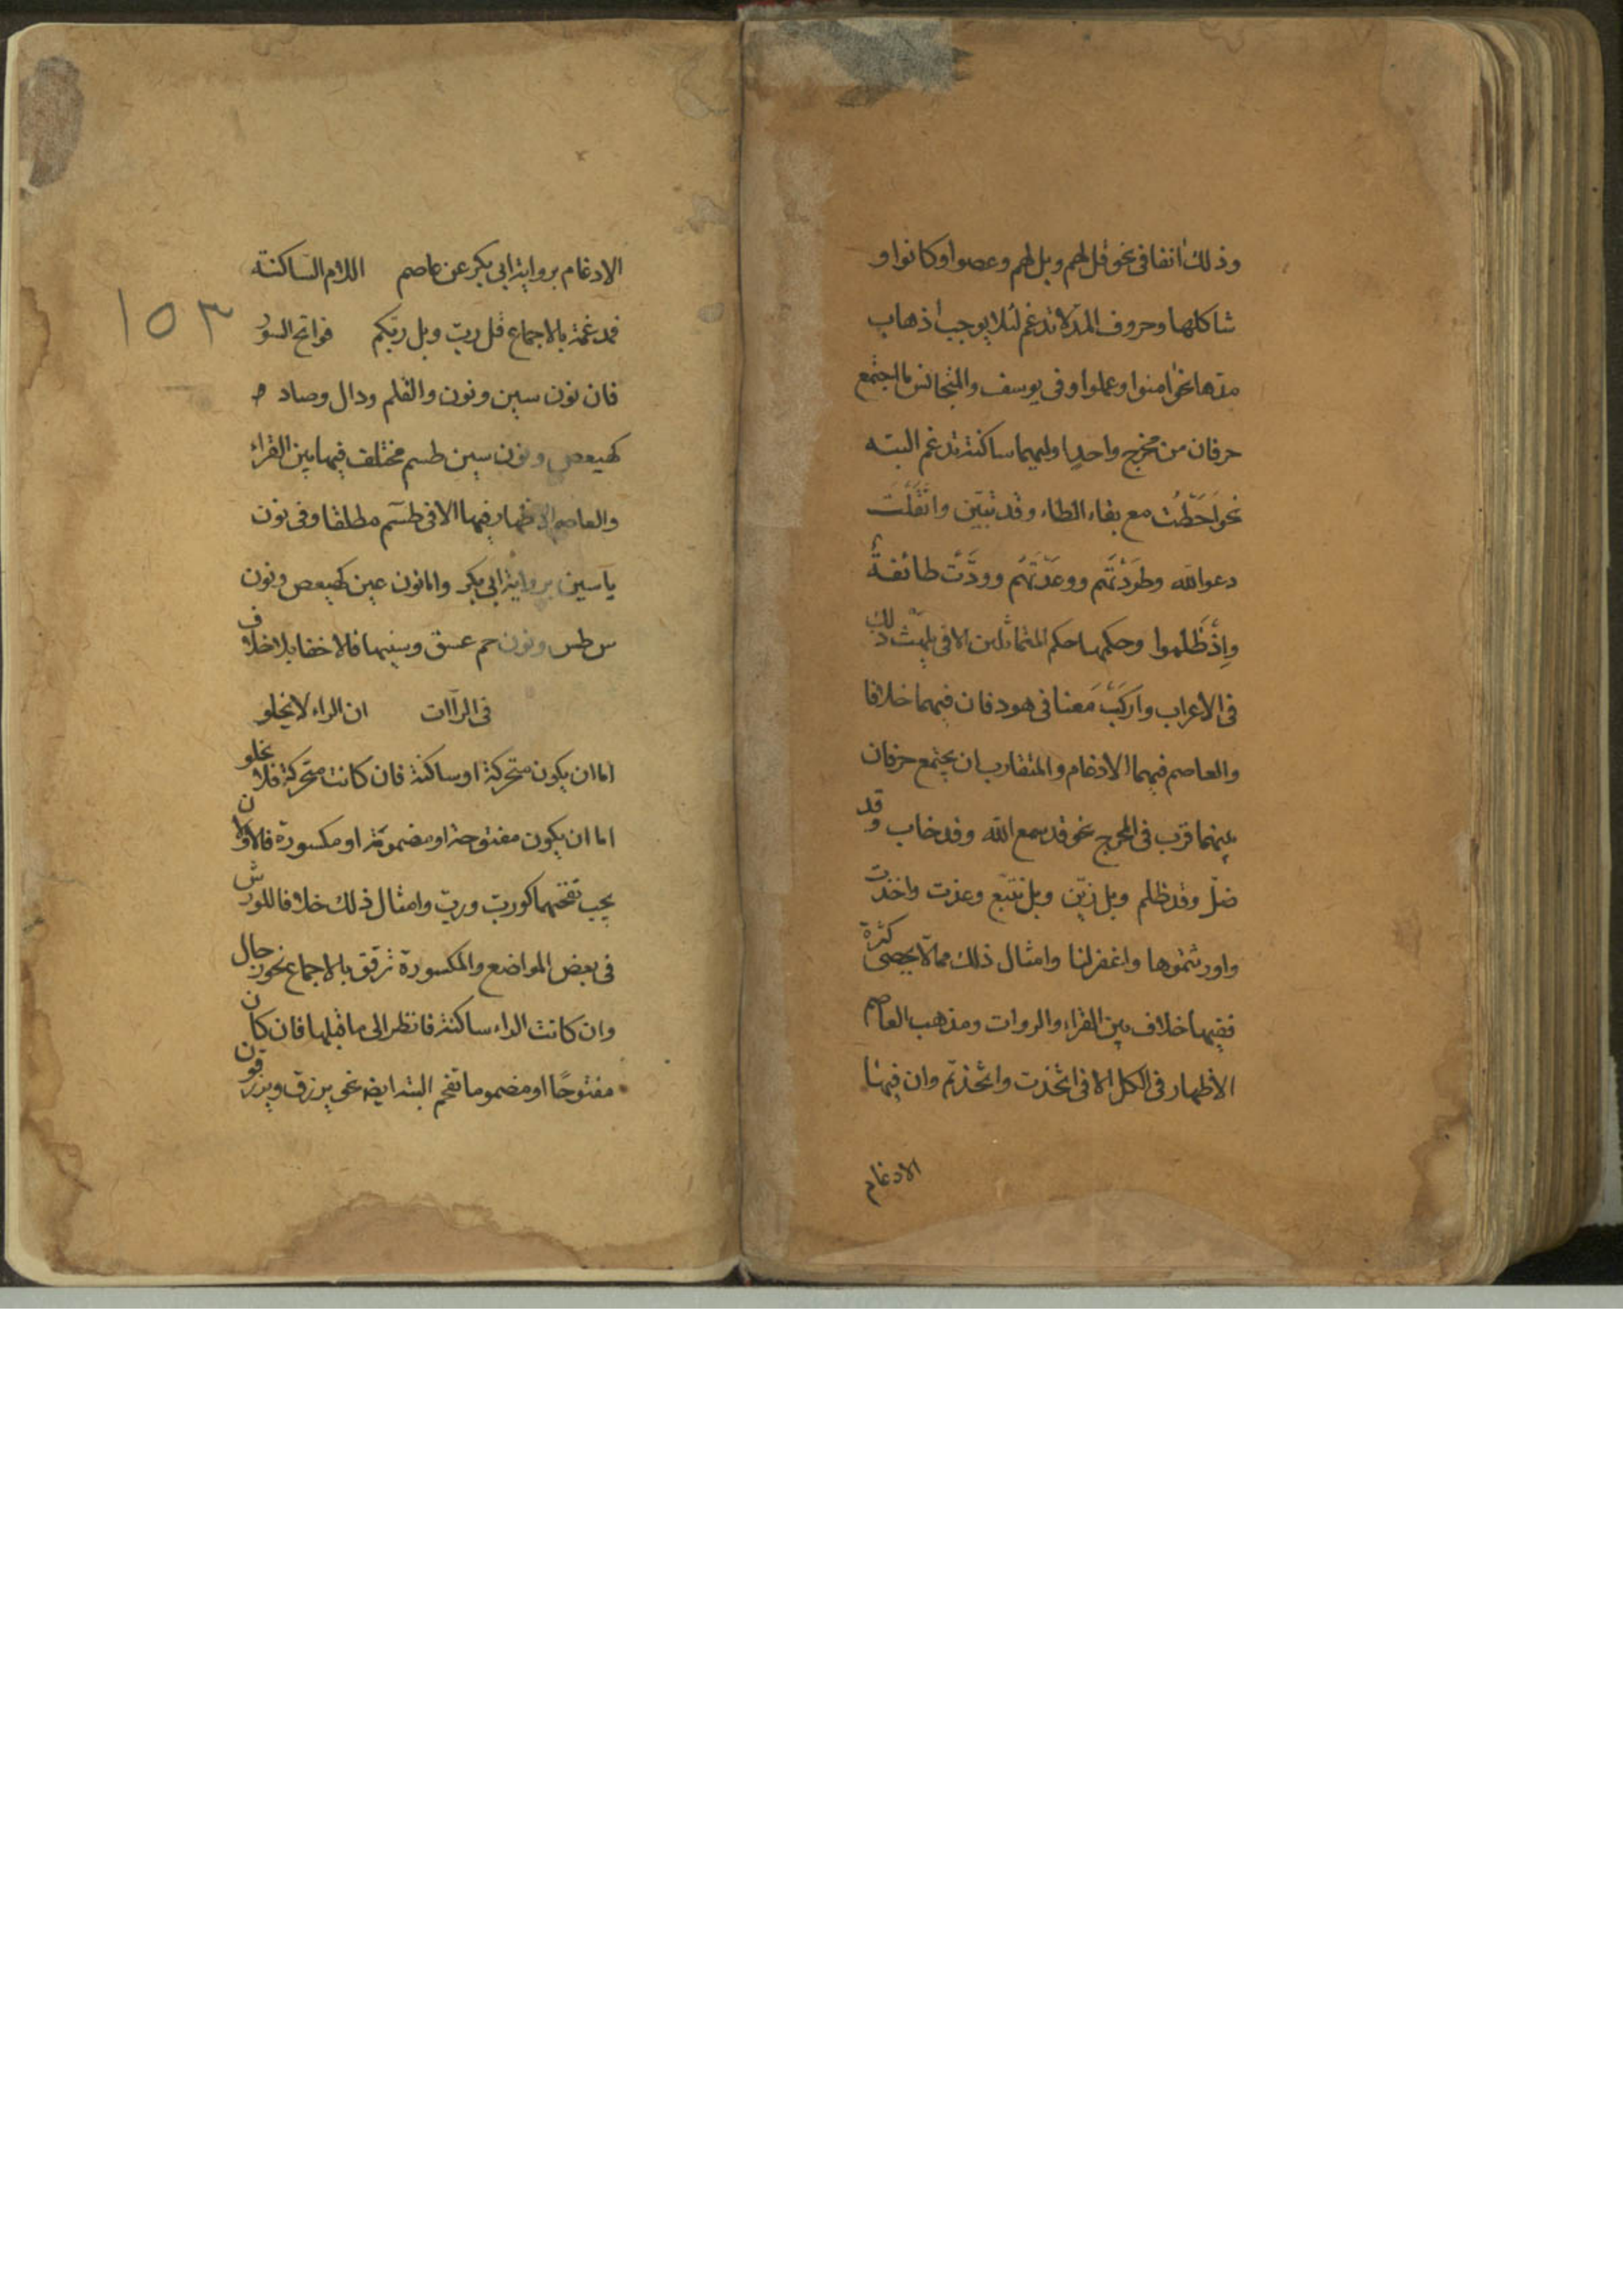 وذلك انفا فی نحو قل لهم وبل لهم وعصوا وكانوا و
شاكلها وحروف المد لا تدغم لئلا يوجب اذهاب
مدها نحو امنوا وعملوا وفی يوسف والمتجانس ما اجتمع
حرفان من مخرج واحد اوليهما ساكنة تدغم البته
نحو احَطْتُ مع بقاء الطاء وقد تبيّن واثْقَلَتْ
دعوا الله وطَرَدْتَهم ووعَدْتَهُم وودَّتْ طائفةٌ
وإذْ ظَلموا وحكمها حكم المتماثلين الا فی يلهث ذلك
فی الاعراب واركَبْ مَعنا فی هود فان فيهما خلافا
والعاصم فيهما الادغام والمتقارب ان يجتمع حرفان
بينهما قرب فی المخرج نحو قد سمع الله وقد خاب وقد
ضلّ وقد ظلم وبل زيّن وبل نتبع وعذت واخذت
واورثتموها واغفر لنا وامثال ذلك مما لا يحصی كثرة
ففيها خلاف بين القراء والروات ومذهب العاصم
الاظهار فی الكل الا فی اتخذت واتخذتم وان فيهما
الادغام
الادغام برواية ابی بكر عن عاصم اللام الساكنة
۱۵۳
فمدغمة بالاجماع قل ربّ وبل ربّكم فواتح السور
فان نون سين ونون والقلم ودال وصاد
كهيعص ونون سين طسم مختلف فيها بين القراء
والعاصم الاظهار فيها الا فی طسٓم مطلقا وفی نون
يآسين برواية ابی بكر واما نون عين كهيعص ونون
س طس ونون حم عسق وسينها فالاخفا بلا خلاف
فی الرآات ان الراء لا يخلو
اما ان يكون متحركة او ساكنة فان كانت متحركة فلا يخلو
اما ان يكون مفتوحة او مضمومة او مكسورة فالاولان
يجب تفخيمها كورب وربّ وامثال ذلك خلافا للورش
فی بعض المواضع والمكسورة ترقق بالاجماع نحو رجال
وان كانت الراء ساكنة فانظر الی ما قبلها فان كان
مفتوحًا او مضموما تفخم البته ايضه نحو يرزق ويرزقون